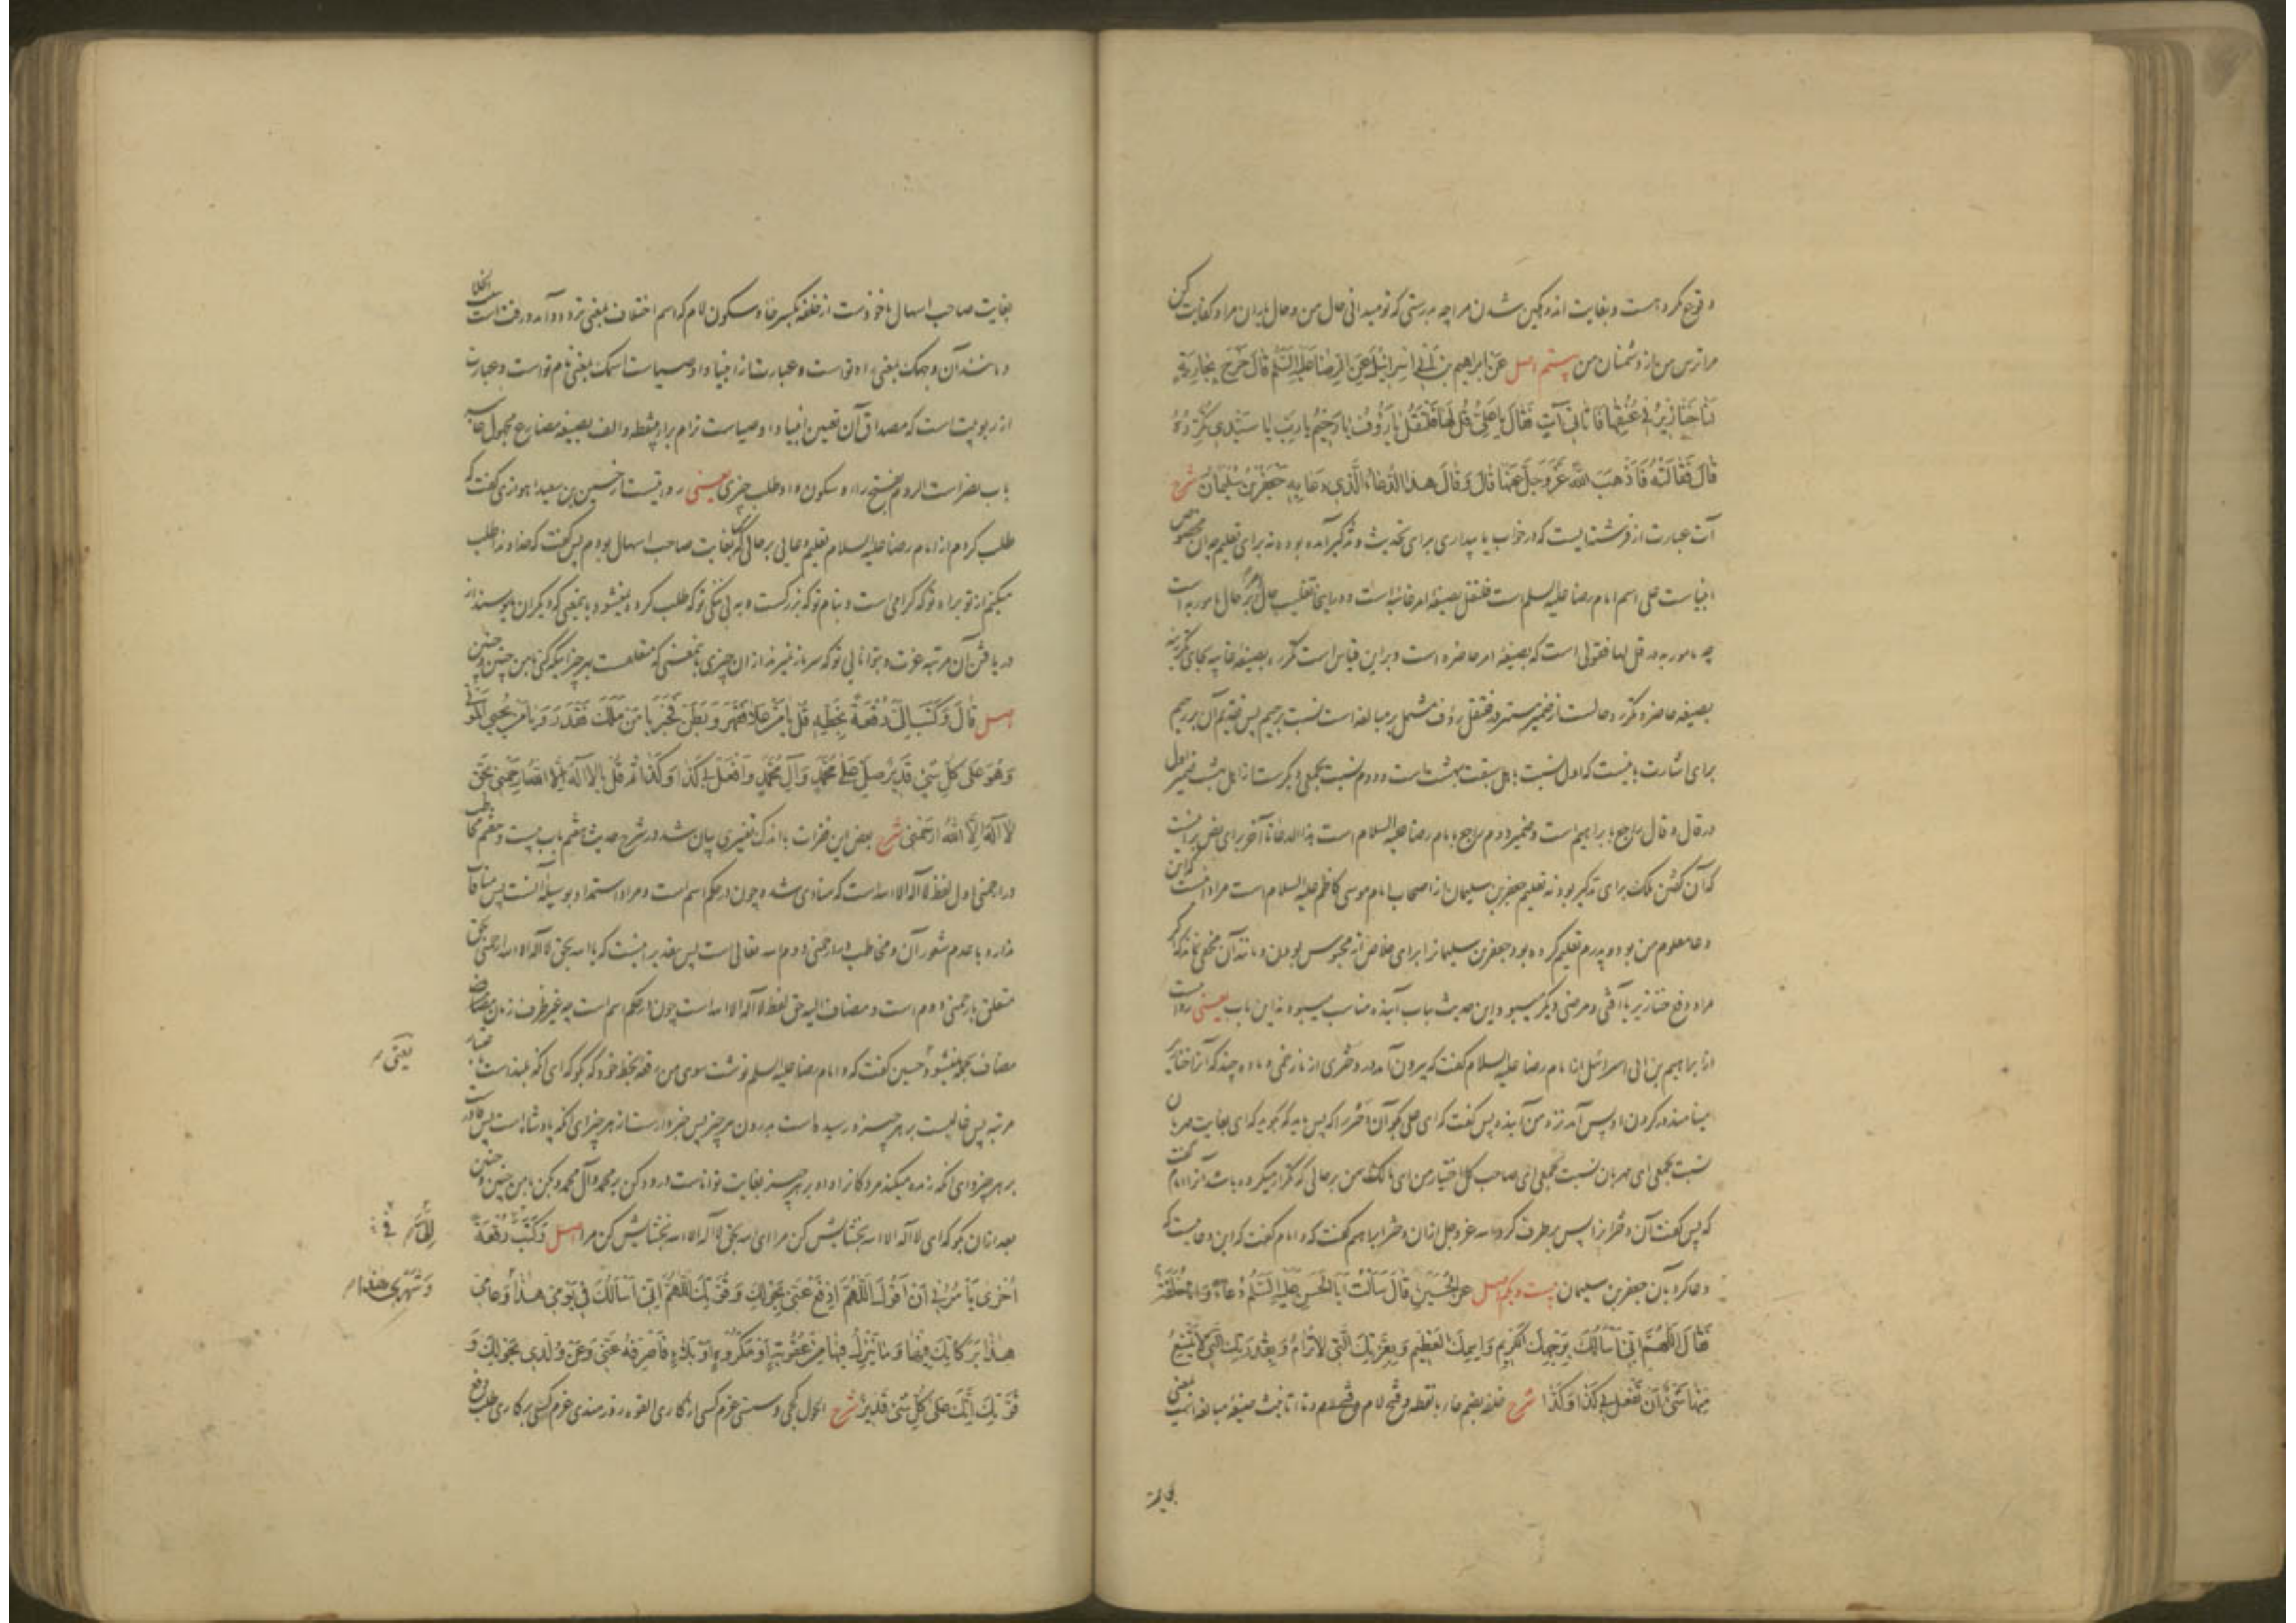 وقوع مکروهست و بغایت اندوهگین شدن مرا چه بدرستی که تو میدانی حال من و حال ایشان مرا و کفایت کن
مرا ترس من از دشمنان من بیستم اصل عَنْ اِبراهیم بن اَبی اِسرائیلَ عَنِ الرِّضا عَلَیْهِ السَّلَم قالَ خَرَجَ بِجارِیَةٍ
لَنا خَنازیرُ فی عُنُقِها فَاَتانی آتٍ فَقالَ یا عَلِیُّ قُل لَها فَلْتَقُلْ یا رَؤُفُ یا رَحیمُ یا رَبِّ یا سَیِّدی تُکَرِّرُهُ
قالَ فَقالَتْهُ فَاَذْهَبَ اللهُ عَزَّ وَجَلَّ عَنْها قالَ وَ قالَ هذا الدُّعاءُ الَّذی دَعا بِهِ جَعْفَرُ بْنُ سُلَیْمانَ شرح
آت عبارت از فرشته‌ایست که در خواب یا بیداری برای تحدیث و تذکیر آمده بوده نه برای تعلیم چه آن مخصوص
انبیاست علی اسم امام رضا علیه السلم است فلتقل بصیغه امر غائبه است و در اینجا تغلیب حال آمر بر حال مامور به است
چه مامور به در قل لها فقولی است که بصیغه امر حاضره است و براین قیاس است تکرره بصیغه غایبه بجای تکررینه
بصیغه حاضره و تکرره حالست از ضمیر مستتر در فلتقل رؤف مشتمل بر مبالغه است نسبت برحیم پس تقدیم آن بر رحیم
برای اشارت باینست که اول نسبت باهل سبقت بهشت است و دوم نسبت بجمعی دیگر است از اهل بهشت ضمیر اول
در قال و قال راجع بابراهیم است و ضمیر دوم راجع بامام رضا علیه السلام است هذا الدعا تا آخر برای نص بر اینست
که آن گفتن ملک برای تذکیر بود نه تعلیم جعفر بن سلیمان از اصحاب امام موسی کاظم علیه السلام است مراد اینست که این
دعا معلوم من بود و پدرم تعلیم کرده بود جعفر بن سلیمانرا برای خلاص از محبوس بودن و مانند آن مخفی نماند که اگر
مراد دفع خنازیر یا آفتی و مرضی دیگر میبود این حدیث بباب آینده مناسب میبود نه این باب یعنی روایت
از ابراهیم بن ابی اسرائیل از امام رضا علیه السلام گفت که بیرون آمد در دختری از ما زخمی و ماده چند که آنرا خنازیر
مینامند در گردن او پس آمد نزد من آینده پس گفت که ای علی بگو آن دختر را که پس باید که بگوید که ای بغایت مهربان
نسبت بجمعی ای مهربان نسبت بجمعی ای صاحب کل اختیار من ای مالک من بر حالی که تکرار میکرده باشد آنرا امام گفت
که پس گفت آن دختر آنرا پس برطرف کرد الله عز و جل از آن دختر ابراهیم گفت که و امام گفت که این دعائیست که
دعا کرد بآن جعفر بن سلیمان بیست و یکم اصل عَنِ الْحُسَیْنِ قالَ سَأَلْتُ اَبَا الْحَسَنِ عَلَیْهِ السَّلَم دُعاءً وَ اَنَا خُلَفَةٌ
فَقالَ اَللّهُمَّ اِنّی اَسْأَلُکَ بِوَجْهِکَ الْکَریمِ وَ اسْمِکَ الْعَظیمِ وَ بِعِزَّتِکَ الَّتی لا تُرامُ وَ بِقُدْرَتِکَ الَّتی لا یَمْتَنِعُ
مِنْها شَیْءٌ اَنْ تَفْعَلَ بی کَذا وَ کَذا شرح خلفه بضم خاء بانقطه و فتح لام و فتح فاء و تاء تانیث صیغه مبالغه است بمعنی
بغایت
بغایت صاحب اسهال ماخوذست از خلفه بکسر خاء و سکون لام که اسم اختلاف بمعنی تردد و آمد و رفت است
و مانند آن وجهک بمعنی راه تو است و عبارت از انبیا و اوصیاست اسمک بمعنی نام تو است و عبارت
از ربوبیت است که مصداق آن تعیین انبیا و اوصیاست ترام براء بینقطه و الف بصیغه مضارع مجهول غایبه
باب نصر است الروم بفتح راء و سکون واو طلب چیزی یعنی روایتست از حسین بن سعید اهوازی گفت که
طلب کردم از امام رضا علیه السلام تعلیم دعایی بر حالی که من بغایت صاحب اسهال بودم پس گفت که خداوندا طلب
میکنم از تو براه تو که گرامی است و بنام تو که بزرگست و به بی ننگی تو که طلب کرده نمیشود باینمعنی که دیگران مایوسند از
دریافتن آن مرتبه عزت و بتوانایی تو که سر باز نمیزند از آن چیزی باینمعنی که متعلقست بهر چیز اینکه کنی بامن چنین و چنین
اصل قالَ وَ کَتَبَ اِلَیَّ رُقْعَةً بِخَطِّهِ قُلْ یا مَنْ عَلا فَقَهَرَ وَ بَطَنَ فَخَبَرَ یا مَنْ مَلَکَ فَقَدَرَ وَ یا مَنْ یُحْیِی الْمَوْتی
وَ هُوَ عَلی کُلِّ شَیْءٍ قَدیرٌ صَلِّ عَلی مُحَمَّدٍ وَ آلِ مُحَمَّدٍ وَ افْعَلْ بی کَذا وَ کَذا ثُمَّ قُلْ یا لا اِلهَ اِلاَّ اللهُ ارْحَمْنی بِحَقِّ
لا اِلهَ اِلاَّ اللهُ ارْحَمْنی شرح بعض این فقرات با اندک تغییری بیان شد در شرح حدیث هفتم باب بیست و هفتم مخاطب
در ارحمنی اول لفظ لا اله الا الله است که منادی شده چون در حکم اسم است و مراد استمداد بوسیله آنست پس منافات
ندارد با عدم شعور آن و مخاطب در ارحمنی دوم الله تعالی است پس تقدیر اینست که یا الله بحق لا اله الا الله ارحمنی بحق
متعلق بارحمنی دوم است و مضاف الیه حق لفظ لا اله الا الله است چون در حکم اسم است چه غیر ظرف زمان مضاف
مضاف بجمله نمیشود حسین گفت که و امام رضا علیه السلم نوشت سوی من رقعه بخط خود که بگو که ای آنکه بلندست باعتبار
مرتبه پس غالبست بر هر چیز و رسیده است بدرون هر چیز پس خبردارست از هر چیز ای آنکه پادشاه است پس قادرست
بر هر چیز و ای آنکه زنده میکند مردگانرا و او بر هر چیز بغایت تواناست درود کن بر محمد و آل محمد و بکن بامن چنین و چنین
بعد از آن بگو که ای لا اله الا الله بخشایش کن مرا ای الله بحق لا اله الا الله بخشایش کن مرا اصل وَ کَتَبَ رُقْعَةً
اُخْری یَأْمُرُنی اَنْ اَقُولَ اَللّهُمَّ ادْفَعْ عَنّی بِحَوْلِکَ وَ قُوَّتِکَ اَللّهُمَّ اِنّی اَسْأَلُکَ فی یَوْمی هذا وَ عامی
هذا بَرَکاتِکَ فیها وَ ما یَنْزِلُ فیها مِنْ عُقُوبَةٍ اَوْ مَکْرُوهٍ اَوْ بَلاءٍ فَاصْرِفْهُ عَنّی وَ عَنْ وُلْدی بِحَوْلِکَ وَ
قُوَّتِکَ اِنَّکَ عَلی کُلِّ شَیْءٍ قَدیرٌ شرح الحول کجی و سستی عزم کسی از کاری القوة زورمندی عزم کسی بر کاری طلب دفع
یعنی
وَ شَهْری هذا